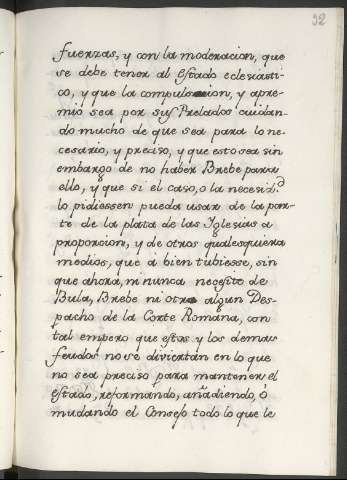 92
fuerzas, y con la moderacion, que
se debe tener al estado eclesiasti-
co, y que la compulsion, y apre-
mio sea por sus Prelados cuidan-
do mucho de que sea para lo ne-
cesario, y preciso, y que esto sea sin
embargo de no haber Brebe para
ello, y que si el caso, o la necesid.d
lo pidiessen pueda usar de la par-
te de la plata de las Yglesias a
proporcion, y de otros qualesquiera
medios, que a bien tubiesse, sin
que ahora, ni nunca necesite de
Bula, Brebe ni otro algun Des-
pacho de la Corte Romana, con
tal empero que estos y los demas
feudos no se diviertan en lo que
no sea preciso para mantener el
estado, reformando, añadiendo, o
mudando el Consejo todo lo que le